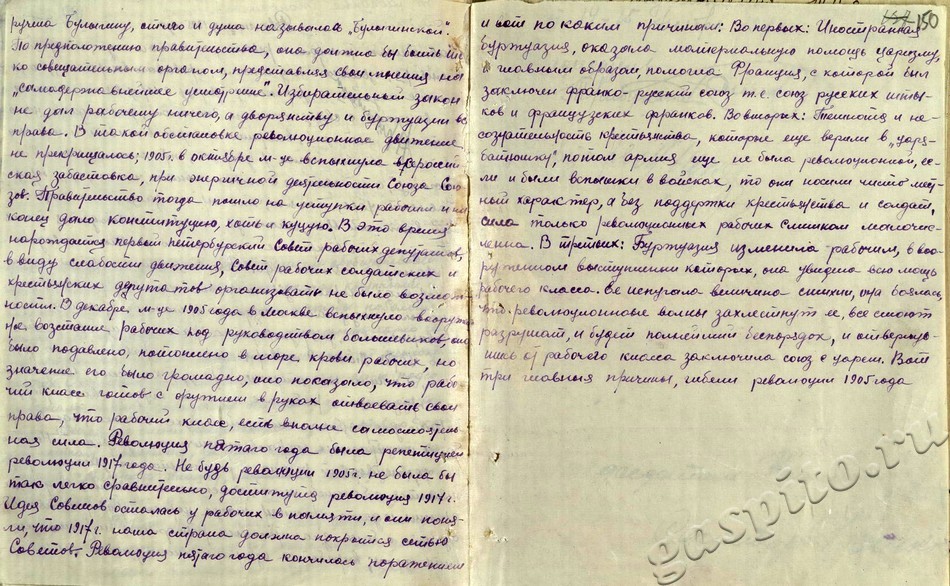 ручена Булыгину, отчего и дума называлась „Булыгинской“.
По предположению правительства, она должна бы быть толь
ко совещательным органом, представляя свои мнения на
„самодержавнейшее усмотрение. Избирательный закон
не дал рабочему ничего, а дворянству и буржуазии все
права. В такой обстановке революционное движение
не прекращалось; 1905 г. в октябре м-це вспыхнула всеросси
ская забастовка, при энергичной деятельности Союза Сою
зов. Правительство тогда пошло на уступки рабочим и на
конец дало конституцию, хоть и куцую. В это время
нарождается первый Петербургский Совет рабочих депутатов,
в виду слабости движения, Совет рабочих солдатских и
крестьянских депутатов организовать не было возмож
ности. В декабре м-це 1905 года в Москве вспыхнуло вооружен
ное возстание рабочих под руководством большевиков, оно
было подавлено, потоплено в море крови рабочих, но
значение его было громадно, оно показало, что рабо
чий класс готов с оружием в руках отвоевать свои
права, что рабочий класс, есть вполне самостоятель
ная сила. Революция пятаго года была репетицией
революции 1917 года. Не будь революции 1905 г. не была бы
так легко сравнительно, достигнута революция 1917 г.
Идея Советов осталась у рабочих в памяти, и они поня-
ли, что 1917 г. наша страна должна покрыться сетью
Советов. Революция пятаго года кончилась поражением
150
и вот по каким причинам: Во первых: Иностранная
буржуазия, оказала материальную помощь царизму,
и главным образом, помогла Франция, с которой был
заключен франко-русский союз т.е. союз русских шты-
ков и французских франков. Во вторых: Темнота и не-
сознательность крестьянства, которые еще верили в „царя-
батюшку“, потом армия еще не была революционной, ес-
ли и были вспышки в войсках, то они носили чисто мест
ный характер, а без поддержки крестьянства и солдат,
сила только революционных рабочих слишком малочис-
ленна. В третьих: Буржуазия изменила рабочим, в воо-
руженном выступлении которых, она увидела всю мощь
рабочего класса. Ее испугала величина стихии, она боялась
что революционные волны захлестнут ее, все сметут
разрушат, и будет полнейший беспорядок, и отвернув-
шись от рабочего класса заключила союз с царем. Вот
три главныя причины, гибели революции 1905 года
gaspito.ru